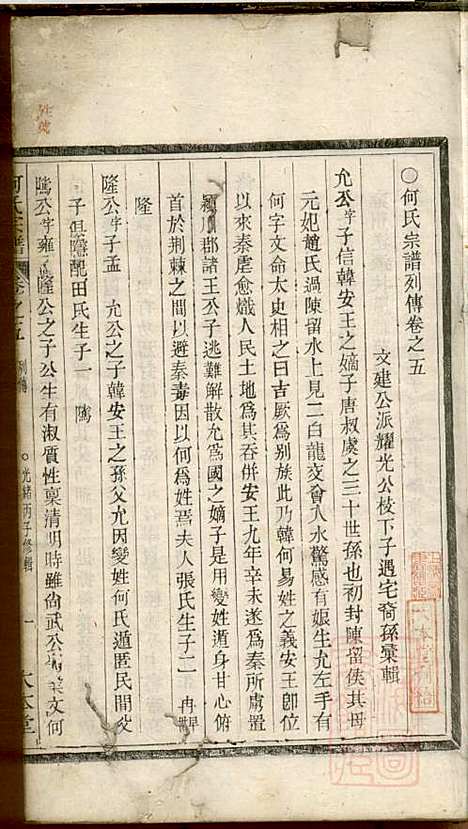 ○何氏宗譜列傳卷之五
文建公派耀光公枝下子遇宅裔孫棻輯
允公字子信韓安王之嫡子唐叔虞之三十世孫也初封陳留侯其母
元妃趙氏過陳留水上見二白龍交會入水驚感有娠生允左手有
何字文命太史相之曰吉厥爲別族此乃韓何易姓之義安王卽位
以來秦虐愈熾人民土地爲其吞併安王九年辛未遂爲秦所虜置
潁川郡諸王公子逃難解散允爲國之嫡子是用變姓遁身甘心俯
首於荆棘之間以避秦毒因以何爲姓焉夫人張氏生子二 冉
隆
隆公字子孟 允公之子韓安王之孫父允因變姓何氏遁匿民間父
子俱隱配田氏生子一 騰
騰公字雍 隆公之子公生有淑質性稟清明時雖尙武公 文何
何氏宗譜 卷之五 列傳 ○光緒丙子修輯 一 大本堂